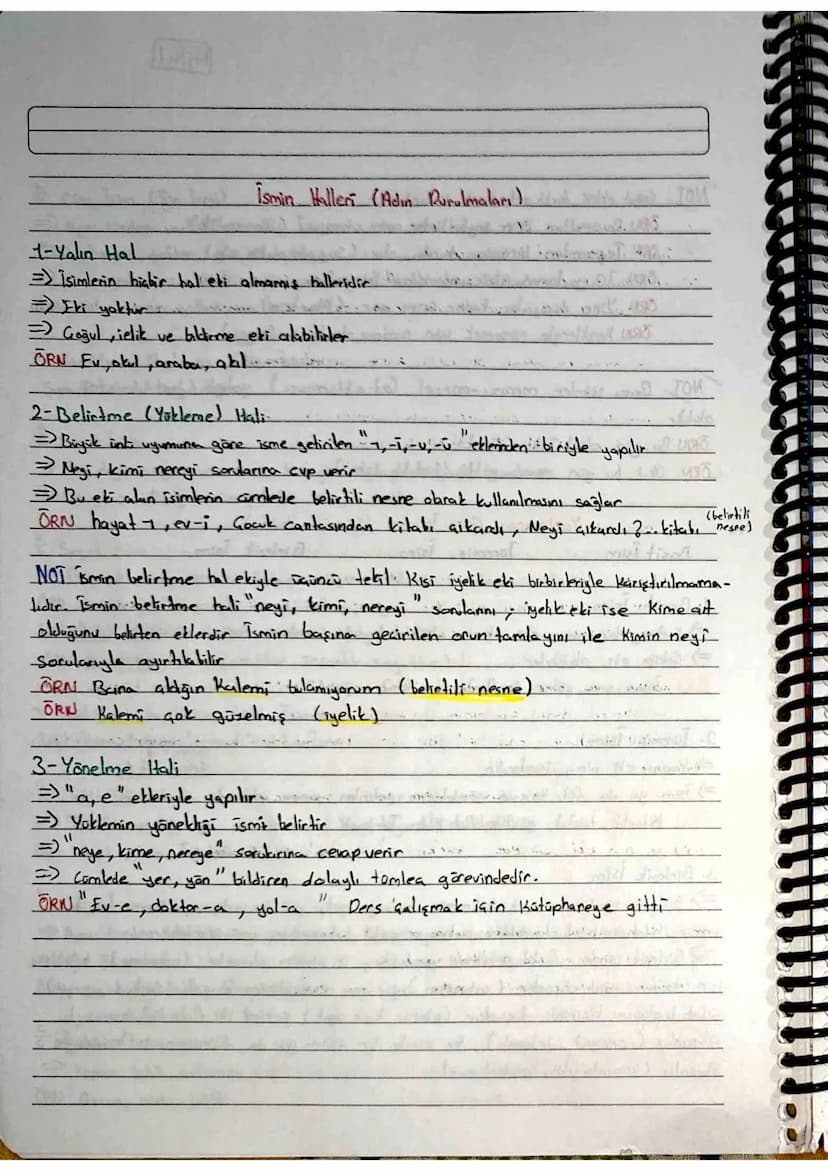 İsmin Halleri (Adın Durulmaları)
1-Yalın Hal
=> İsimlerin hiçbir hal eki almamış halleridir
=> Eki yoktur
=> Çoğul, ielik ve bildirme eki alabilirler
ÖRN Ev, okul, araba, akıl
2-Belirtme (Yükleme) Hali
=> Büyük ünlü uyumuna göre isme getirilen "-ı, -i, -u, -ü" eklerinden biriyle yapılır
=> Neyi, kimi nereyi sorularına cvp verir
=> Bu eki alan isimlerin cümlede belirtili nesne olarak kullanılmasını sağlar
ÖRN hayat-ı, ev-i, Çocuk çantasından kitabı çıkardı, Neyi çıkardı?.. kitabı (belirtili nesne)
NOT ismin belirtme hal ekiyle üçüncü tekil Kişi iyelik eki birbirleriyle karıştırılmama-
lıdır. İsmin belirtme hali "neyi, kimi, nereyi" sorularını, iyelik eki ise kime ait
olduğunu belirten eklerdir İsmin başına geçirilen onun tamlayını ile kimin neyi
sorularıyla ayırtılabilir
ÖRN Bana aldığın Kalemi bulamıyorum (belirtili nesne)
ÖRN Kalemi çok güzelmiş (iyelik)
3-Yönelme Hali
=> "a, e" ekleriyle yapılır
=> Yüklemin yöneldiği ismi belirtir
=> "neye, kime, nereye" sorularına cevap verir
=> Cümlede "yer, yön" bildiren dolaylı tümleç görevindedir.
ÖRN "Ev-e, doktor-a, yol-a" Ders çalışmak için Kütüphaneye gitti